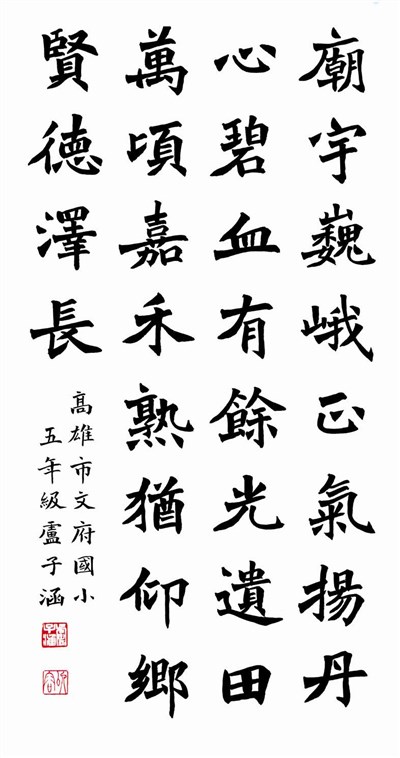 廟宇巍峨正氣揚丹
心碧血有餘光遺田
萬頃嘉禾熟猶仰鄉
賢德澤長
高雄市文府國小
五年級盧子涵